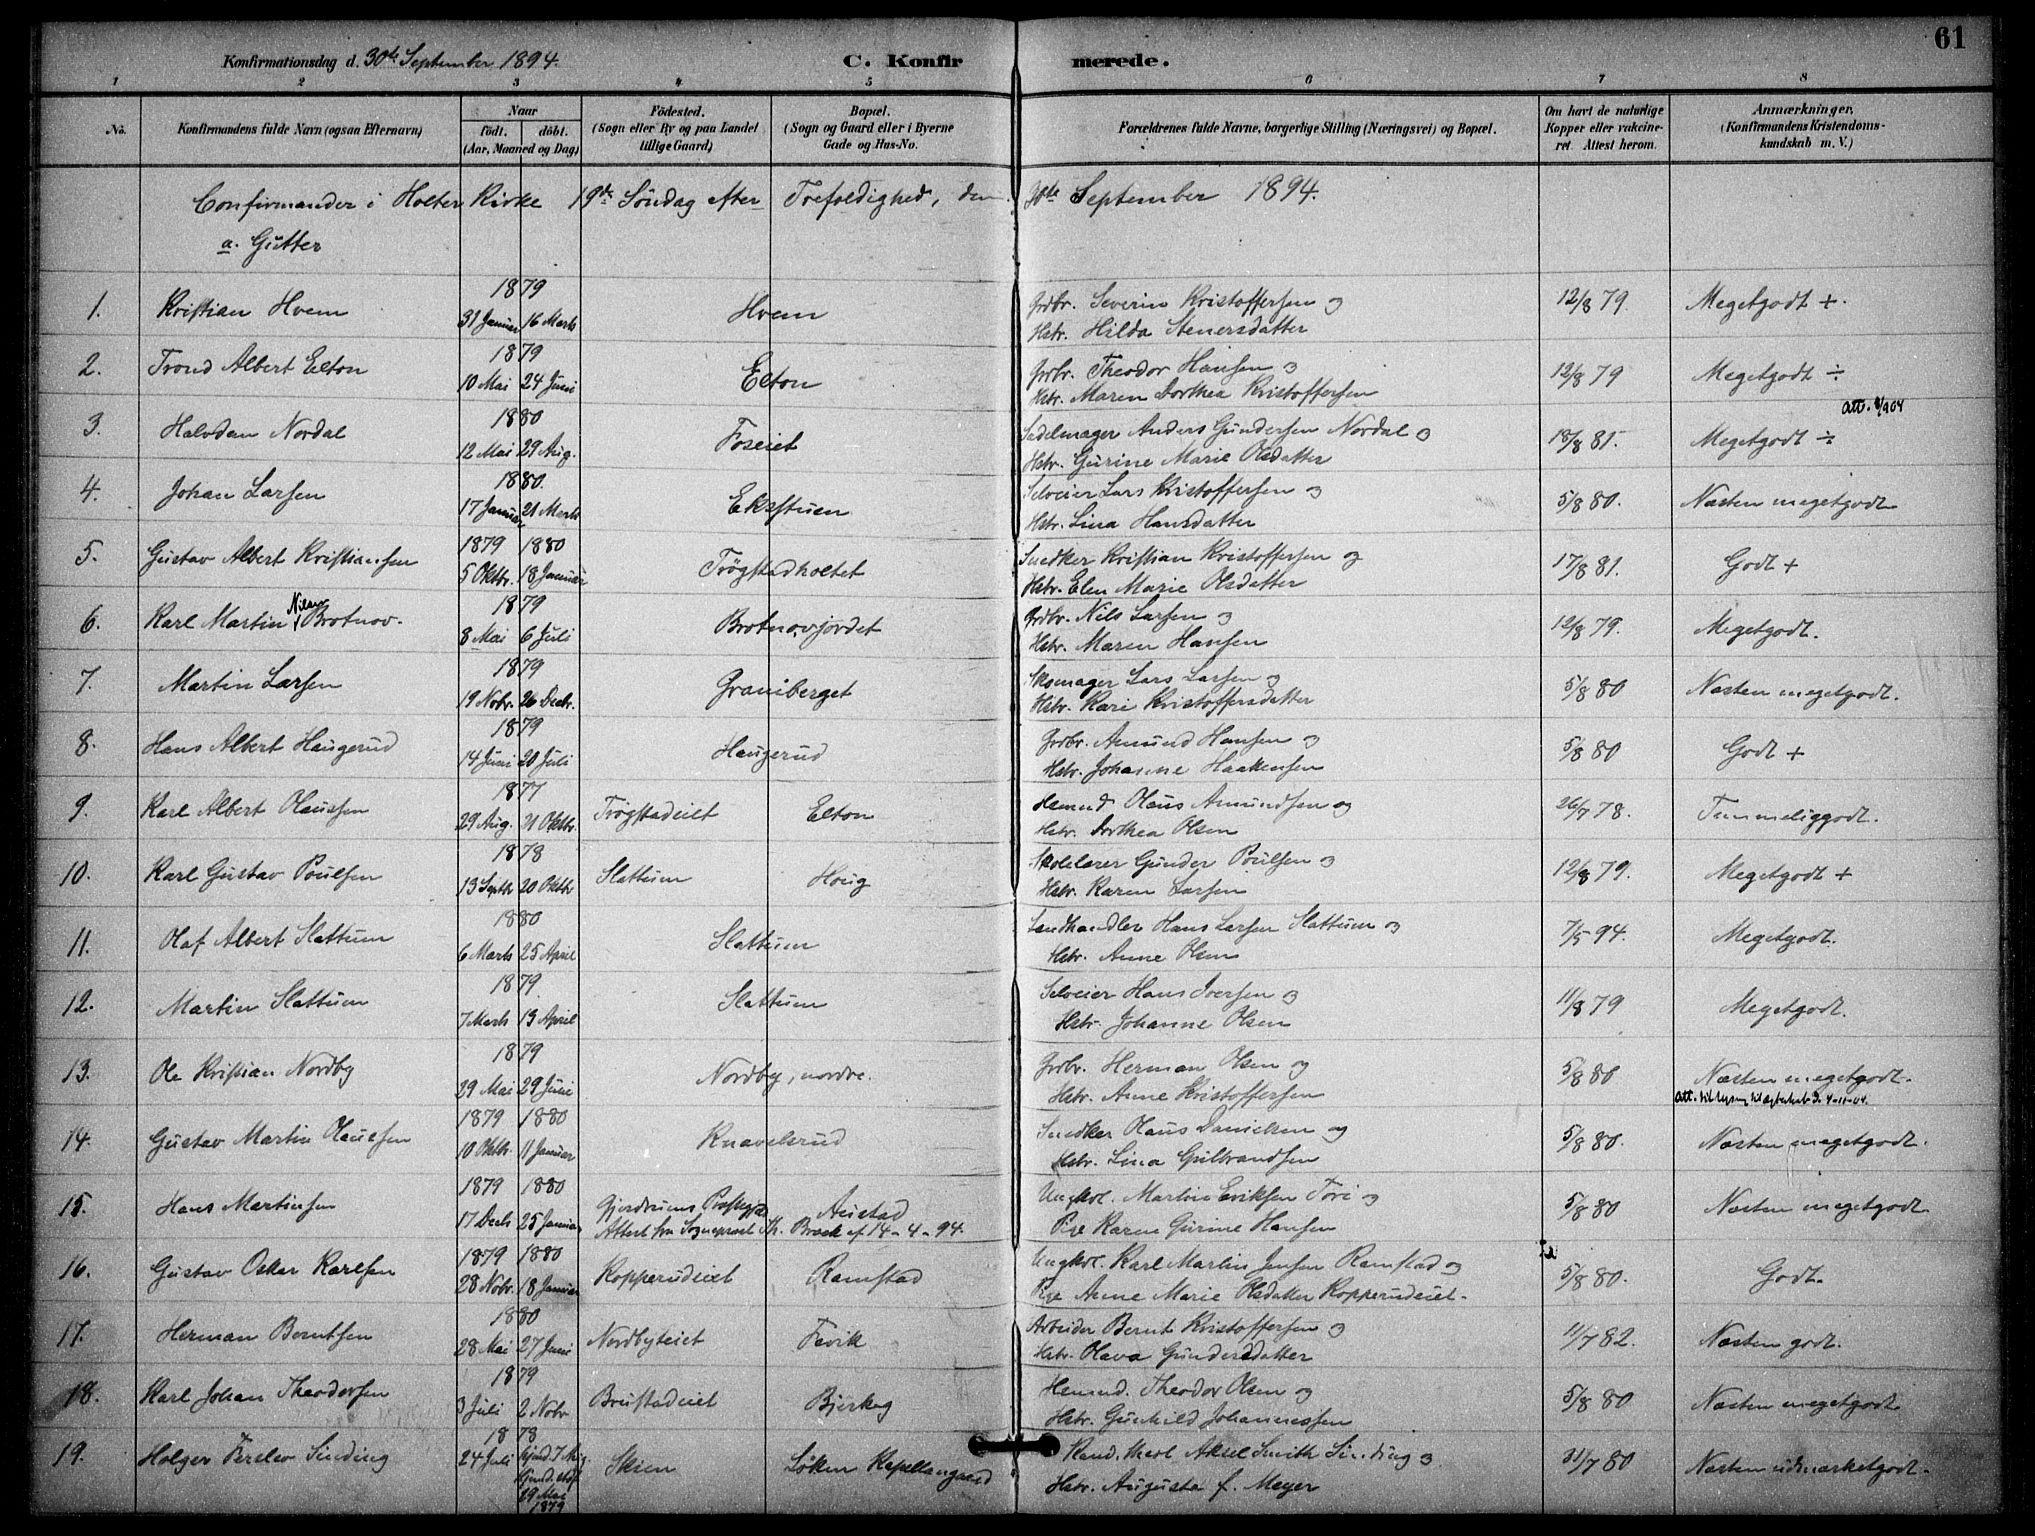 61
Konfirmationsdag d. 30te September 1894. C. Konfirmerede.
1 2 3 4 5 6 7 8
No. Konfirmandens fulde Navn (ogsaa Efternavn) Naar födt. döbt. (Aar, Maaned og Dag) Födested. (Sogn eller By og paa Landet tillige Gaard) Bopæl. (Sogn og Gaard eller i Byerne Gade og Hus-No. Forældrenes fulde Navne, borgerlige Stilling (Næringsvei) og Bopæl. Om havt de naturlige Kopper eller vakcineret Attest herom. Anmærkninger. (Konfirmandens Kristendomskundskab m. V.)
Confirmander i Holter Kirke 19de Söndag efter Trefoldighed, den 30te September 1894.
a. Gutter
1. Kristian Hvem 1879 31 Januar 16 Marts Hvem Grdbr. Severin Kristoffersen og 12/8 79. Megetgodt +.
Hstr. Hilda Stenersdatter
2. Trond Albert Elton 1879 10 Mai 24 Juni Elton Grdbr. Theodor Hansen og 12/8 79 Megetgodt ÷
Hstr. Maren Dorthea Kristoffersen
3. Halvdan Nordal 1880 12 Mai 29 Aug. Foseiet Sadelmager Anders Gundersen Nordal og 18/8 81. Megetgodt ÷
Hstr. Gurine Marie Olsdatter
4. Johan Larsen 1880. 17 Januar 21 Marts Ekstuen Selveier Lars Kristoffersen og 5/8 80. Næsten megetgodt
Hstr. Lina Hansdatter
5. Gustav Albert Kristiansen 1879 1880 5 Oktbr. 18 Januar Trögstadholtet Snedker Kristian Kristoffersen og 17/8 81. Godt +
Hstr. Elen Marie Olsdatter
6. Karl Martin Nilsen Brotnov. 1879 8 Mai 6 Juli Brotnovjordet Grdbr. Nils Larsen og 12/8 79. Megetgodt.
Hstr. Maren Hansen
7. Martin Larsen 1879 19 Nobr. 26 Decbr. Graniberget Skomager Lars Larsen og 5/8 80 Næsten megetgodt.
Hstr. Kari Kristoffersdatter
8. Hans Albert Haugerud 1879 14 Juni 20 Juli Haugerud Grdbr. Amund Hansen og 5/8 80 Godt +
Hstr. Johanne Haakensen
9. Karl Albert Olaussen 1877 29 Aug. 21 Oktbr. Trögstadeiet Elton Hsmnd Olaus Amundsen og 26/7 78. Temmeliggodt.
Hstr. Dorthea Olsen
10. Karl Gustav Poulsen 1878 13 Septbr 20 Oktbr Slattum Houg Skolelærer Gunder Poulsen og 12/8 79. Megetgodt +
Hstr. Karen Larsen
11. Olaf Albert Slattum 1880 6 Marts 25 April Slattum Landhandler Hans Larsen Slattum og 7/5 94. Megetgodt.
Hstr. Anne Olsen
12. Martin Slattum 1879. 7 Marts 13 April Slattum Selveier Hans Iversen og 11/8 79 Megetgodt.
Hstr. Johanne Olsen
13. Ole Kristian Nordby 1879 29 Mai 29 Juni Nordby, nordre. Grdbr. Herman Olsen og 5/8 80 Næsten megetgodt.
Hstr. Anne Kristoffersen
14. Gustav Martin Olaussen 1879 1880 10 Oktbr. 11 Januar Knavelsrud Snedker Olaus Danielsen og 5/8 80. Næsten megetgodt.
Hstr. Lina Gulbrandsen
15. Hans Martinsen 1879 1880 17 Decb 25 Januar Gjerdrums Austad Ungkol. Martin Eriksen Tori og 5/8 80 Næsten megetgodt
Attest fra Sogneprest Th. Brock af 14-4-94. Pige Karen Gurine Hansen
16. Gustav Oskar Karlsen 1879 1880 28 Nobr. 18 Januar Kopperudeiet Ramstad Ungkol. Karl Martin Jensen Ramstad og 5/8 80. Godt.
Pige Anne Marie Olsdatter Kopperudeiet.
17. Herman Berntsen 1880 28 Mai 27 Juni Nordbyeiet Fevik Arbeider Bernt Kristoffersen og 11/7 82. Næsten godt.
Hstr. Olava Gundersdatter
18. Karl Johan Theodorsen 1879 3 Juli 2 Nobr Brustadeiet Bjerkeg Hsmnd. Theodor Olsen og 5/8 80 Næsten megetgodt
Hstr. Gunhild Johannessen
19. Holger Sinding 1878 24 Juli 29 Mai 1879 Skien Löken Kapellangaard Kand. Aksel Smith Sinding og 31/7 80 Næsten udmærketgodt.
Hstr. Augusta f. Meyer